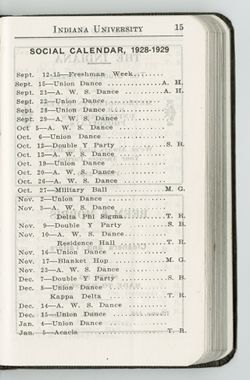 INDIANA UNIVERSITY 15
SOCIAL CALENDAR, 1928-1929
Sept. 12-15—Freshman Week
Sept. 15—Union Dance A. H.
Sept. 21—A. W. S. Dance A. H.
Sept. 22—Union Dance
Sept. 28—Union Dance
Sept. 29—A. W. S. Dance
Oct 5—A. W. S. Dance
Oct. 6—Union Dance
Oct. 12—Double Y Party S. B.
Oct. 13—A. W. S. Dance
Oct. 19—Union Dance
Oct. 20—A. W. S. Dance
Oct. 26—A. W. S. Dance
Oct. 27—Military Ball M. G.
Nov. 2—Union Dance
Nov. 3—A. W. S. Dance
Delta Phi Sigma T. R.
Nov. 9—Double Y Party S. B.
Nov. 10—A. W. S. Dance
Residence Hall T. R.
Nov. 16—Union Dance
Nov. 17—Blanket Hop M. G.
Nov. 23—A. W. S. Dance
Dec. 7—Double Y Party S. B.
Dec. 8—Union Dance
Kappa Delta T. R.
Dec. 14—A. W. S. Dance
Dec. 15—Union Dance
Jan. 4—Union Dance
Jan. 5—Acacia T. R.